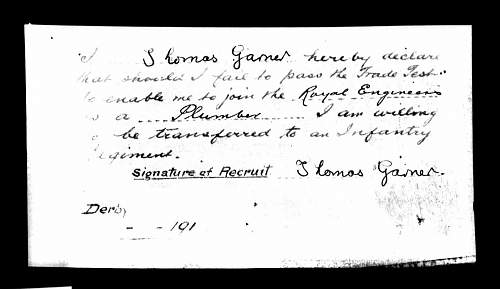 I Thomas Garner hereby declare
that should I fail to pass the Trade Test
to enable me to join the Royal Engineers
as a Plumber I am willing
to be transferred to an Infantry
Regiment.
Signature of Recruit Thomas Garner.
Derby
- - 191